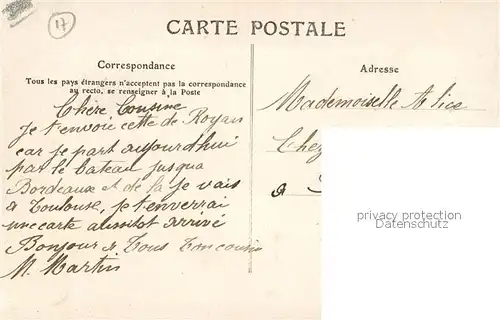 17
CARTE POSTALE
Correspondance
Tous les pays étrangers n'acceptent pas la correspondance
au recto, se renseigner à la Poste
Chère Cousine
Je t'envoie cette de Royan
car je part aujourd'hui
par le bateau jusqua
Bordeaux et de la je vais
a Toulouse, je t'enverrai
une carte aussitot arrivé
Bonjour a Tous Ton cousin
M. Martin
Adresse
Mademoiselle Alice
Chez
a
privacy protection
Datenschutz